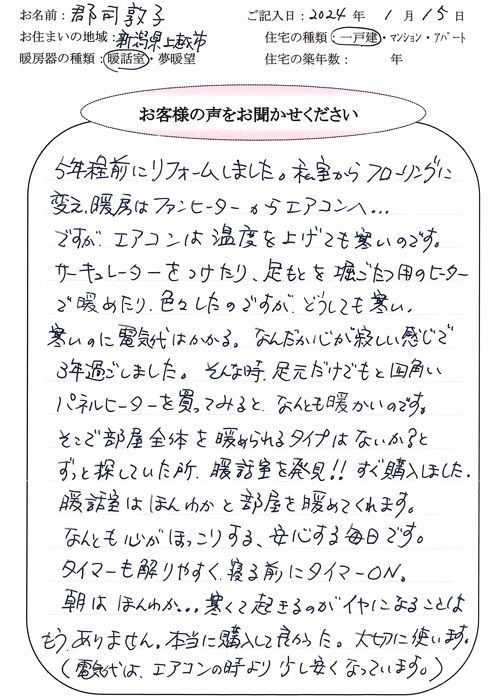 お名前：郡司敦子
ご記入日：2024 年 1 月 15 日
お住まいの地域：新潟県上越市
住宅の種類：一戸建・マンション・アパート
暖房器の種類：暖話室・夢暖望
住宅の築年数： 年
お客様の声をお聞かせください
5年程前にリフォームしました。和室からフローリングに
変え、暖房はファンヒーターからエアコンへ…
ですが、エアコンは温度を上げても寒いのです。
サーキュレーターをつけたり、足もとを堀ごたつ用のヒーター
で暖めたり、色々したのですが、どうしても寒い。
寒いのに電気代はかかる。なんだか心が寂しい感じで
3年過ごしました。そんな時、足元だけでもと四角い
パネルヒーターを買ってみると、なんとも暖かいのです。
そこで部屋全体を暖められるタイプはないか？と
ずっと探していた所、暖話室を発見!!すぐ購入しました。
暖話室はほんわかと部屋を暖めてくれます。
なんとも心がほっこりする、安心する毎日です。
タイマーも解りやすく、寝る前にタイマーON。
朝はほんわか…寒くて起きるのがイヤになることは
もうありません。本当に購入して良かった。大切に使います。
（電気代は、エアコンの時より少し安くなっています。）